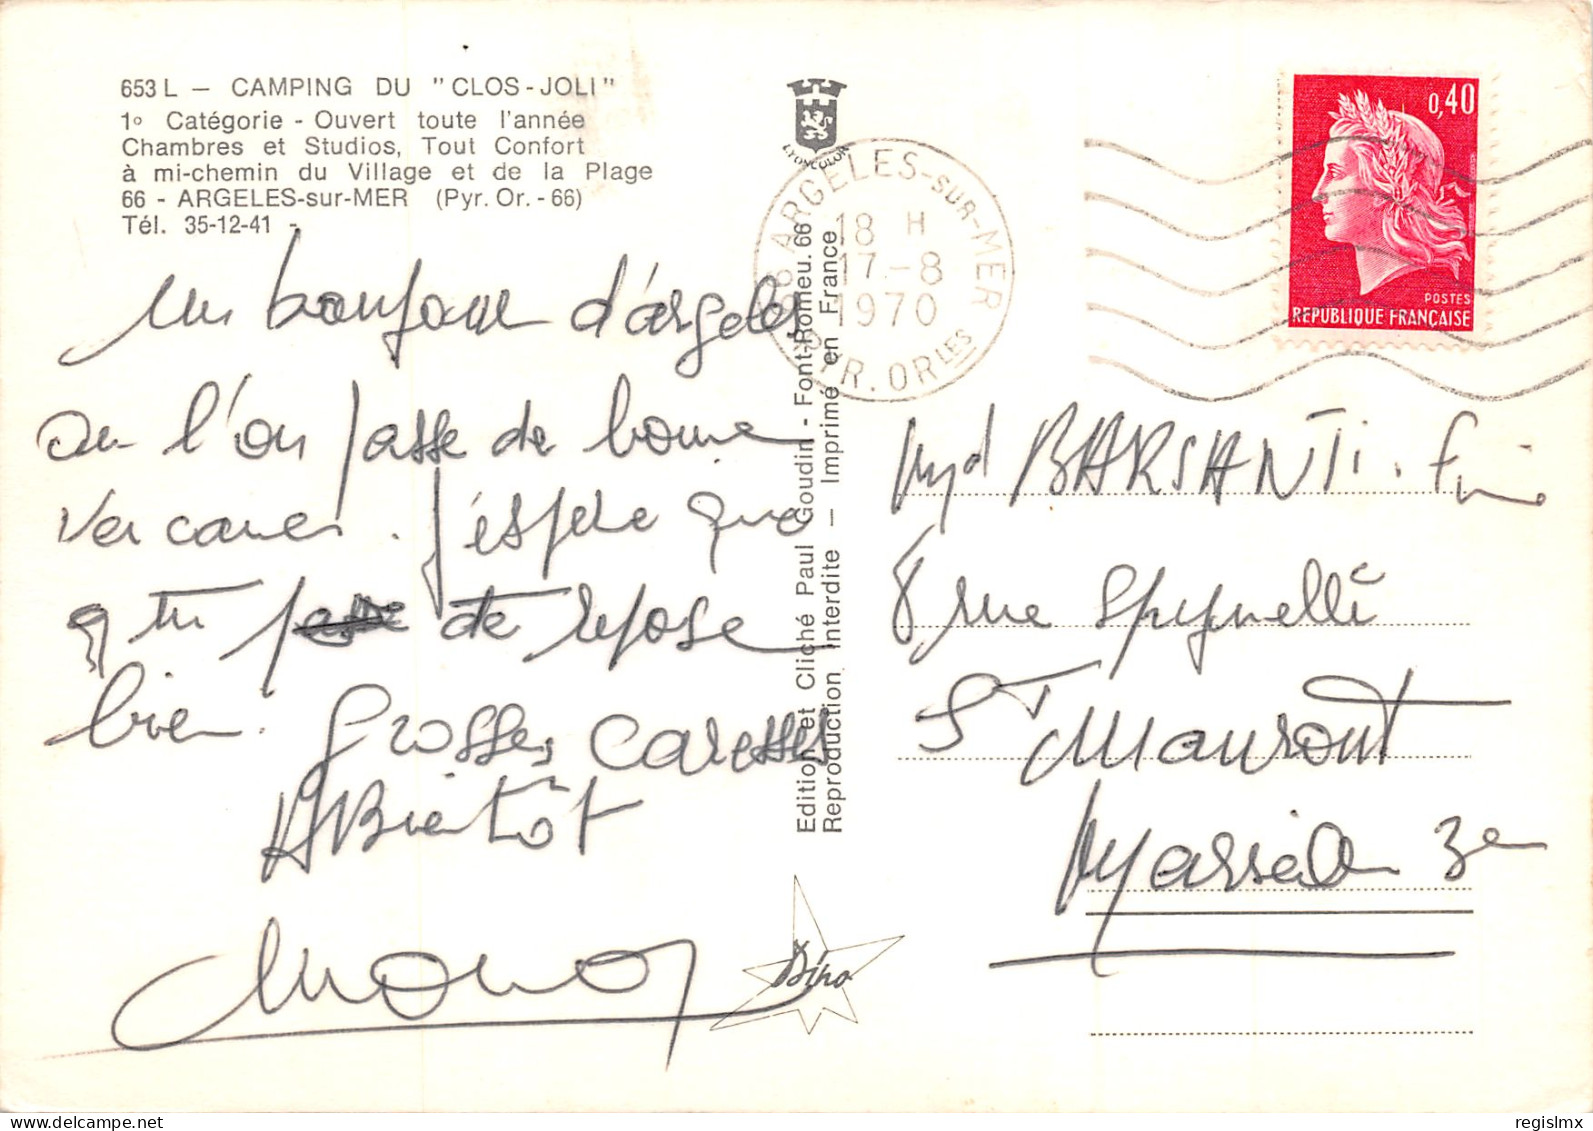 653 L — CAMPING DU "CLOS-JOLI"
1º Catégorie - Ouvert toute l'année
Chambres et Studios, Tout Confort
à mi-chemin du Village et de la Plage
66 - ARGELES-sur-MER (Pyr. Or. - 66)
Tél. 35-12-41 -
Un bonjour d'Argeles
ou l'on passe de bonne
vacances. J'espère que
tu te repose
bien. Grosses caresses
A Bientôt
LYONCOLOR
Edition et Cliché Paul Goudin - Font-Romeu. 66
Reproduction Interdite — Imprimé en France
Dino
66 ARGELES-SUR-MER
18 H
17-8
1970
PYR. ORLES
0,40
POSTES
REPUBLIQUE FRANÇAISE
BARSANTI
8 rue Spynelli
St Mauront
Marseille 3e
regislmx